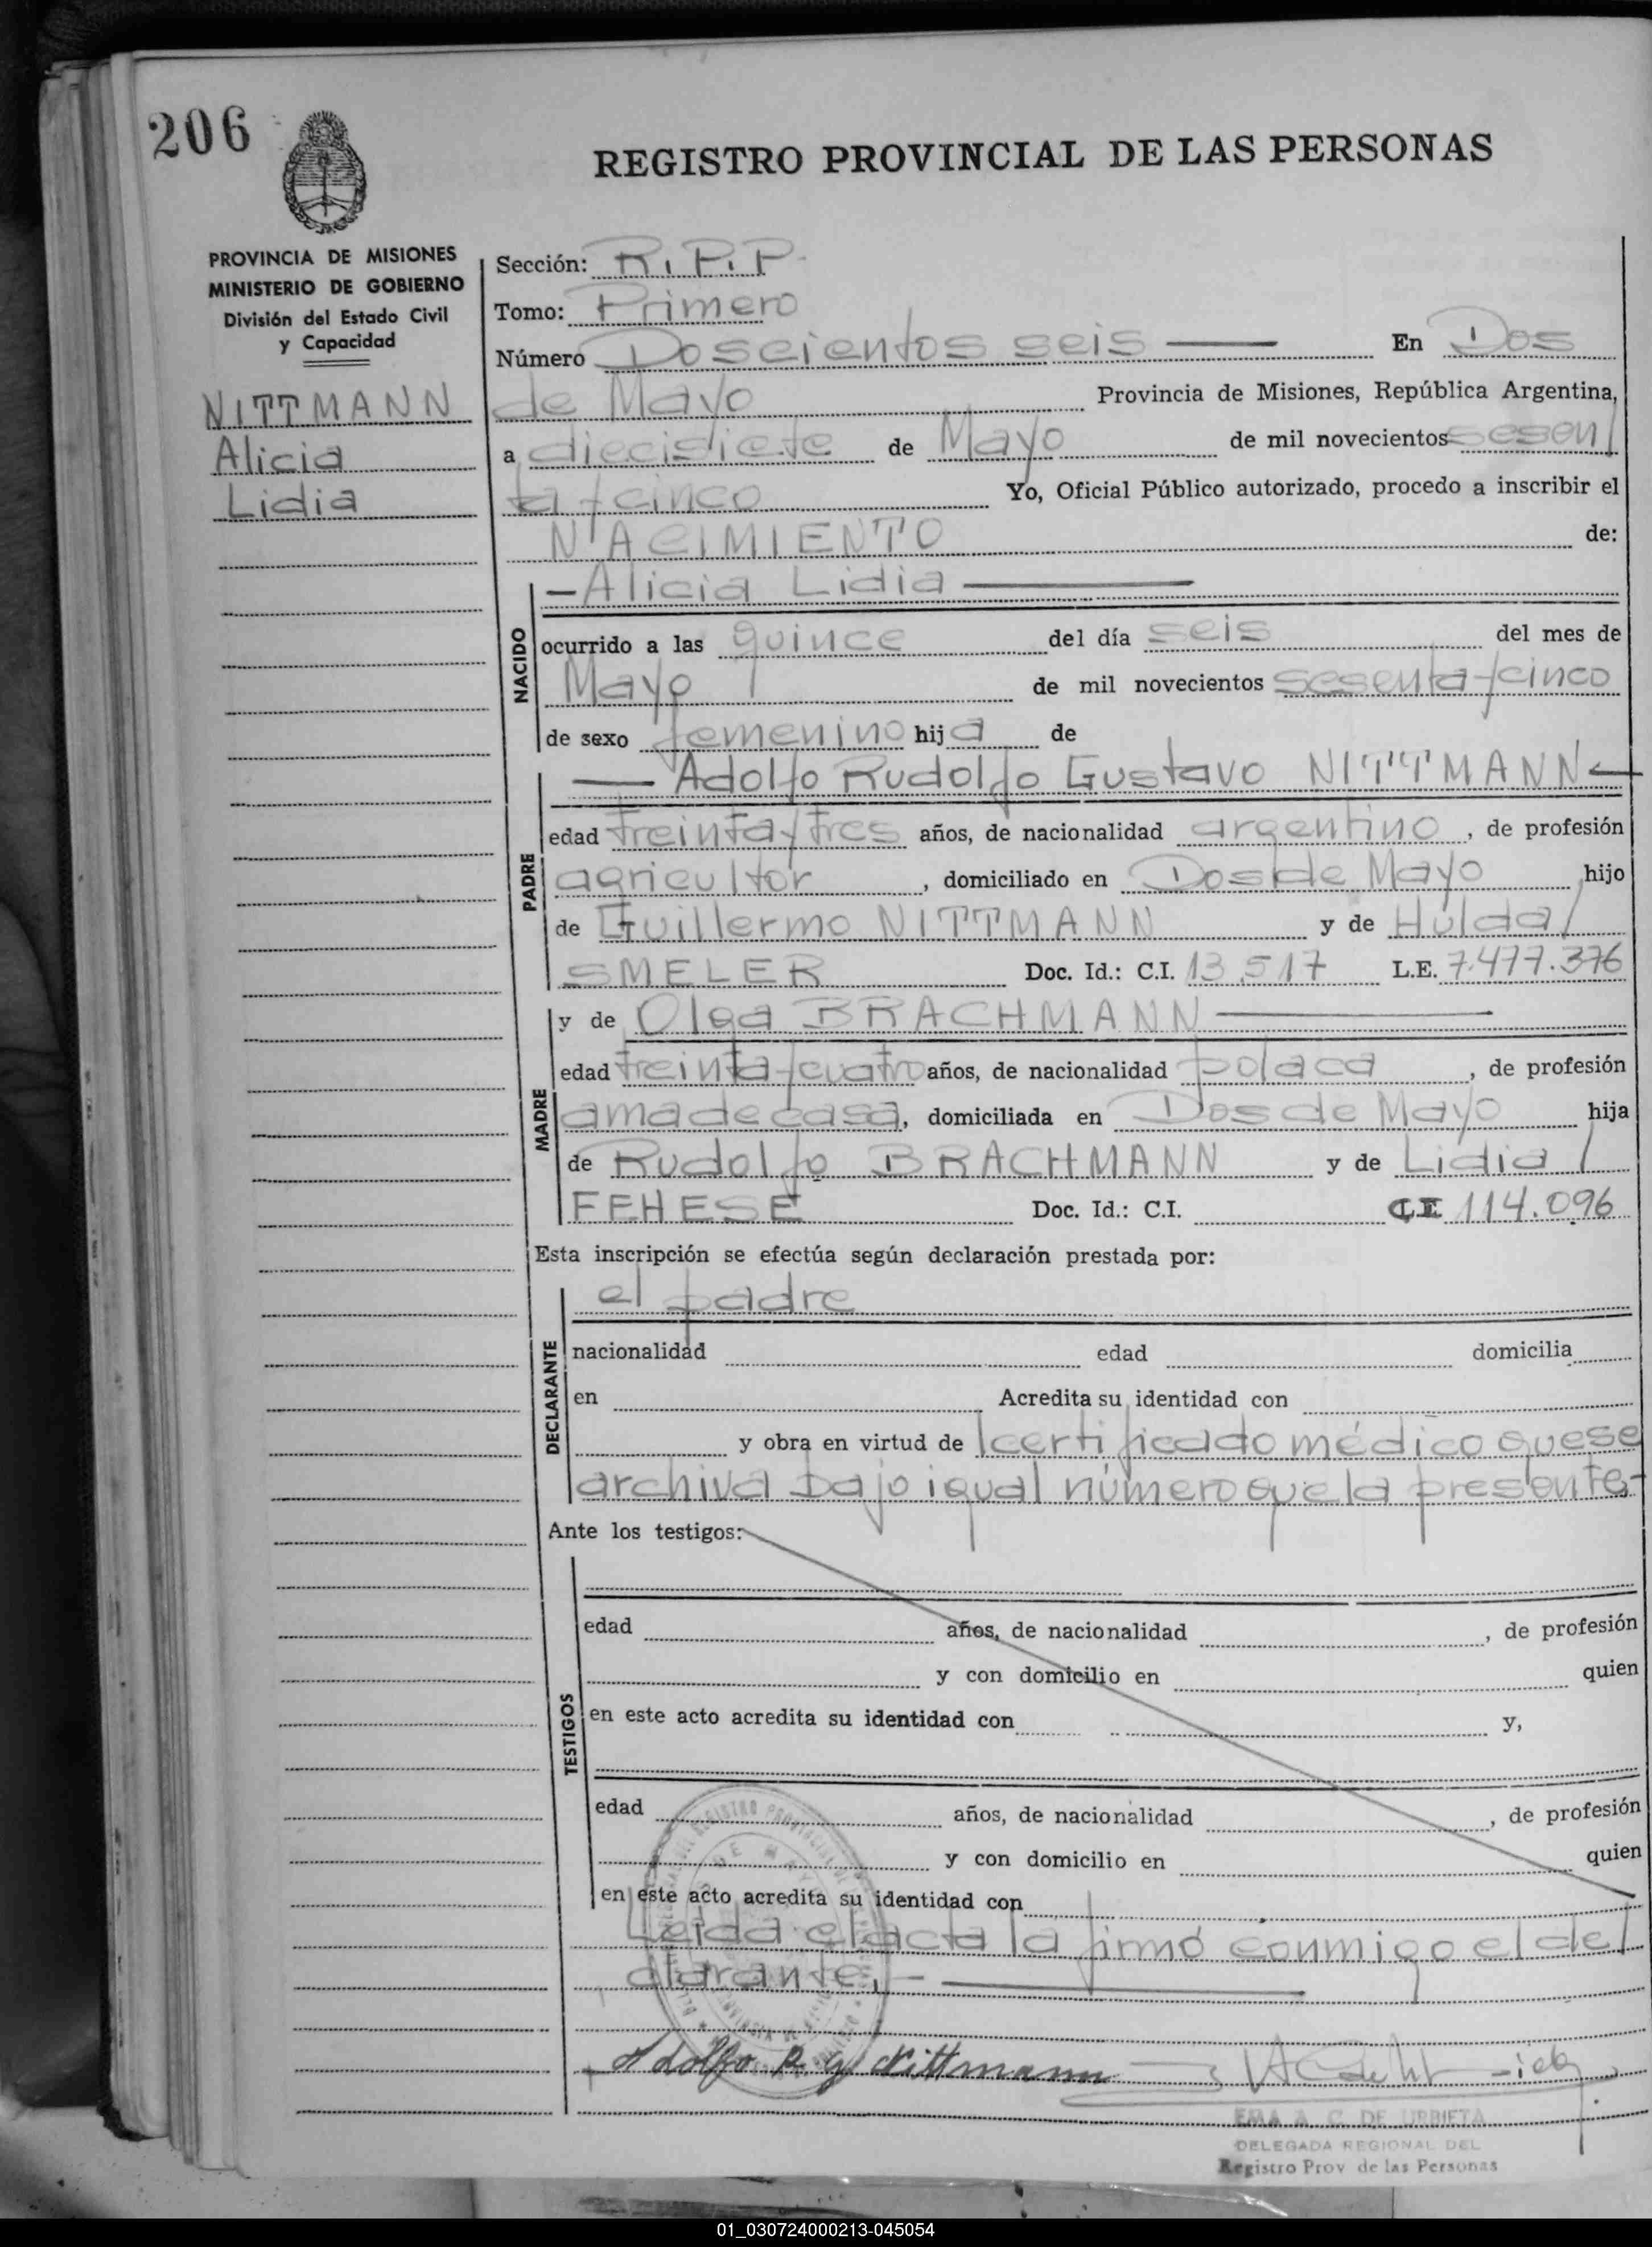 206
REGISTRO PROVINCIAL DE LAS PERSONAS
PROVINCIA DE MISIONES
MINISTERIO DE GOBIERNO
División del Estado Civil
y Capacidad
NITTMANN
Alicia
Lidia
Sección: R.P.P.
Tomo: Primero
Número Doscientos seis — En Dos
de Mayo Provincia de Misiones, República Argentina,
a diecisiete de Mayo de mil novecientos sesen/
ta y cinco Yo, Oficial Público autorizado, procedo a inscribir el
NACIMIENTO de:
NACIDO
—Alicia Lidia—
ocurrido a las quince del día seis del mes de
Mayo de mil novecientos sesenta y cinco
de sexo femenino hija de
PADRE
— Adolfo Rudolfo Gustavo NITTMANN—
edad treinta y tres años, de nacionalidad argentino, de profesión
agricultor, domiciliado en Dos de Mayo hijo
de Guillermo NITTMANN y de Hulda/
SMELER Doc. Id.: C.I. 13.517 L.E. 7.477.376
MADRE
y de Olga BRACHMANN—
edad treinta y cuatro años, de nacionalidad polaca, de profesión
ama de casa, domiciliada en Dos de Mayo hija
de Rudolfo BRACHMANN y de Lidia/
FEHESE Doc. Id.: C.I. C.I. 114.096
Esta inscripción se efectúa según declaración prestada por:
DECLARANTE
el padre
nacionalidad edad domicilia
en Acredita su identidad con
y obra en virtud de certificado médico que se
archiva bajo igual número que la presente-
Ante los testigos:
TESTIGOS
edad años, de nacionalidad , de profesión
y con domicilio en quien
en este acto acredita su identidad con y,
edad años, de nacionalidad , de profesión
y con domicilio en quien
en este acto acredita su identidad con
Leida el acta la firmó conmigo el de/
clarante.—
Adolfo R G Nittmann
EMA A. C. DE URBIETA
DELEGADA REGIONAL DEL
Registro Prov de las Personas
01_030724000213-045054